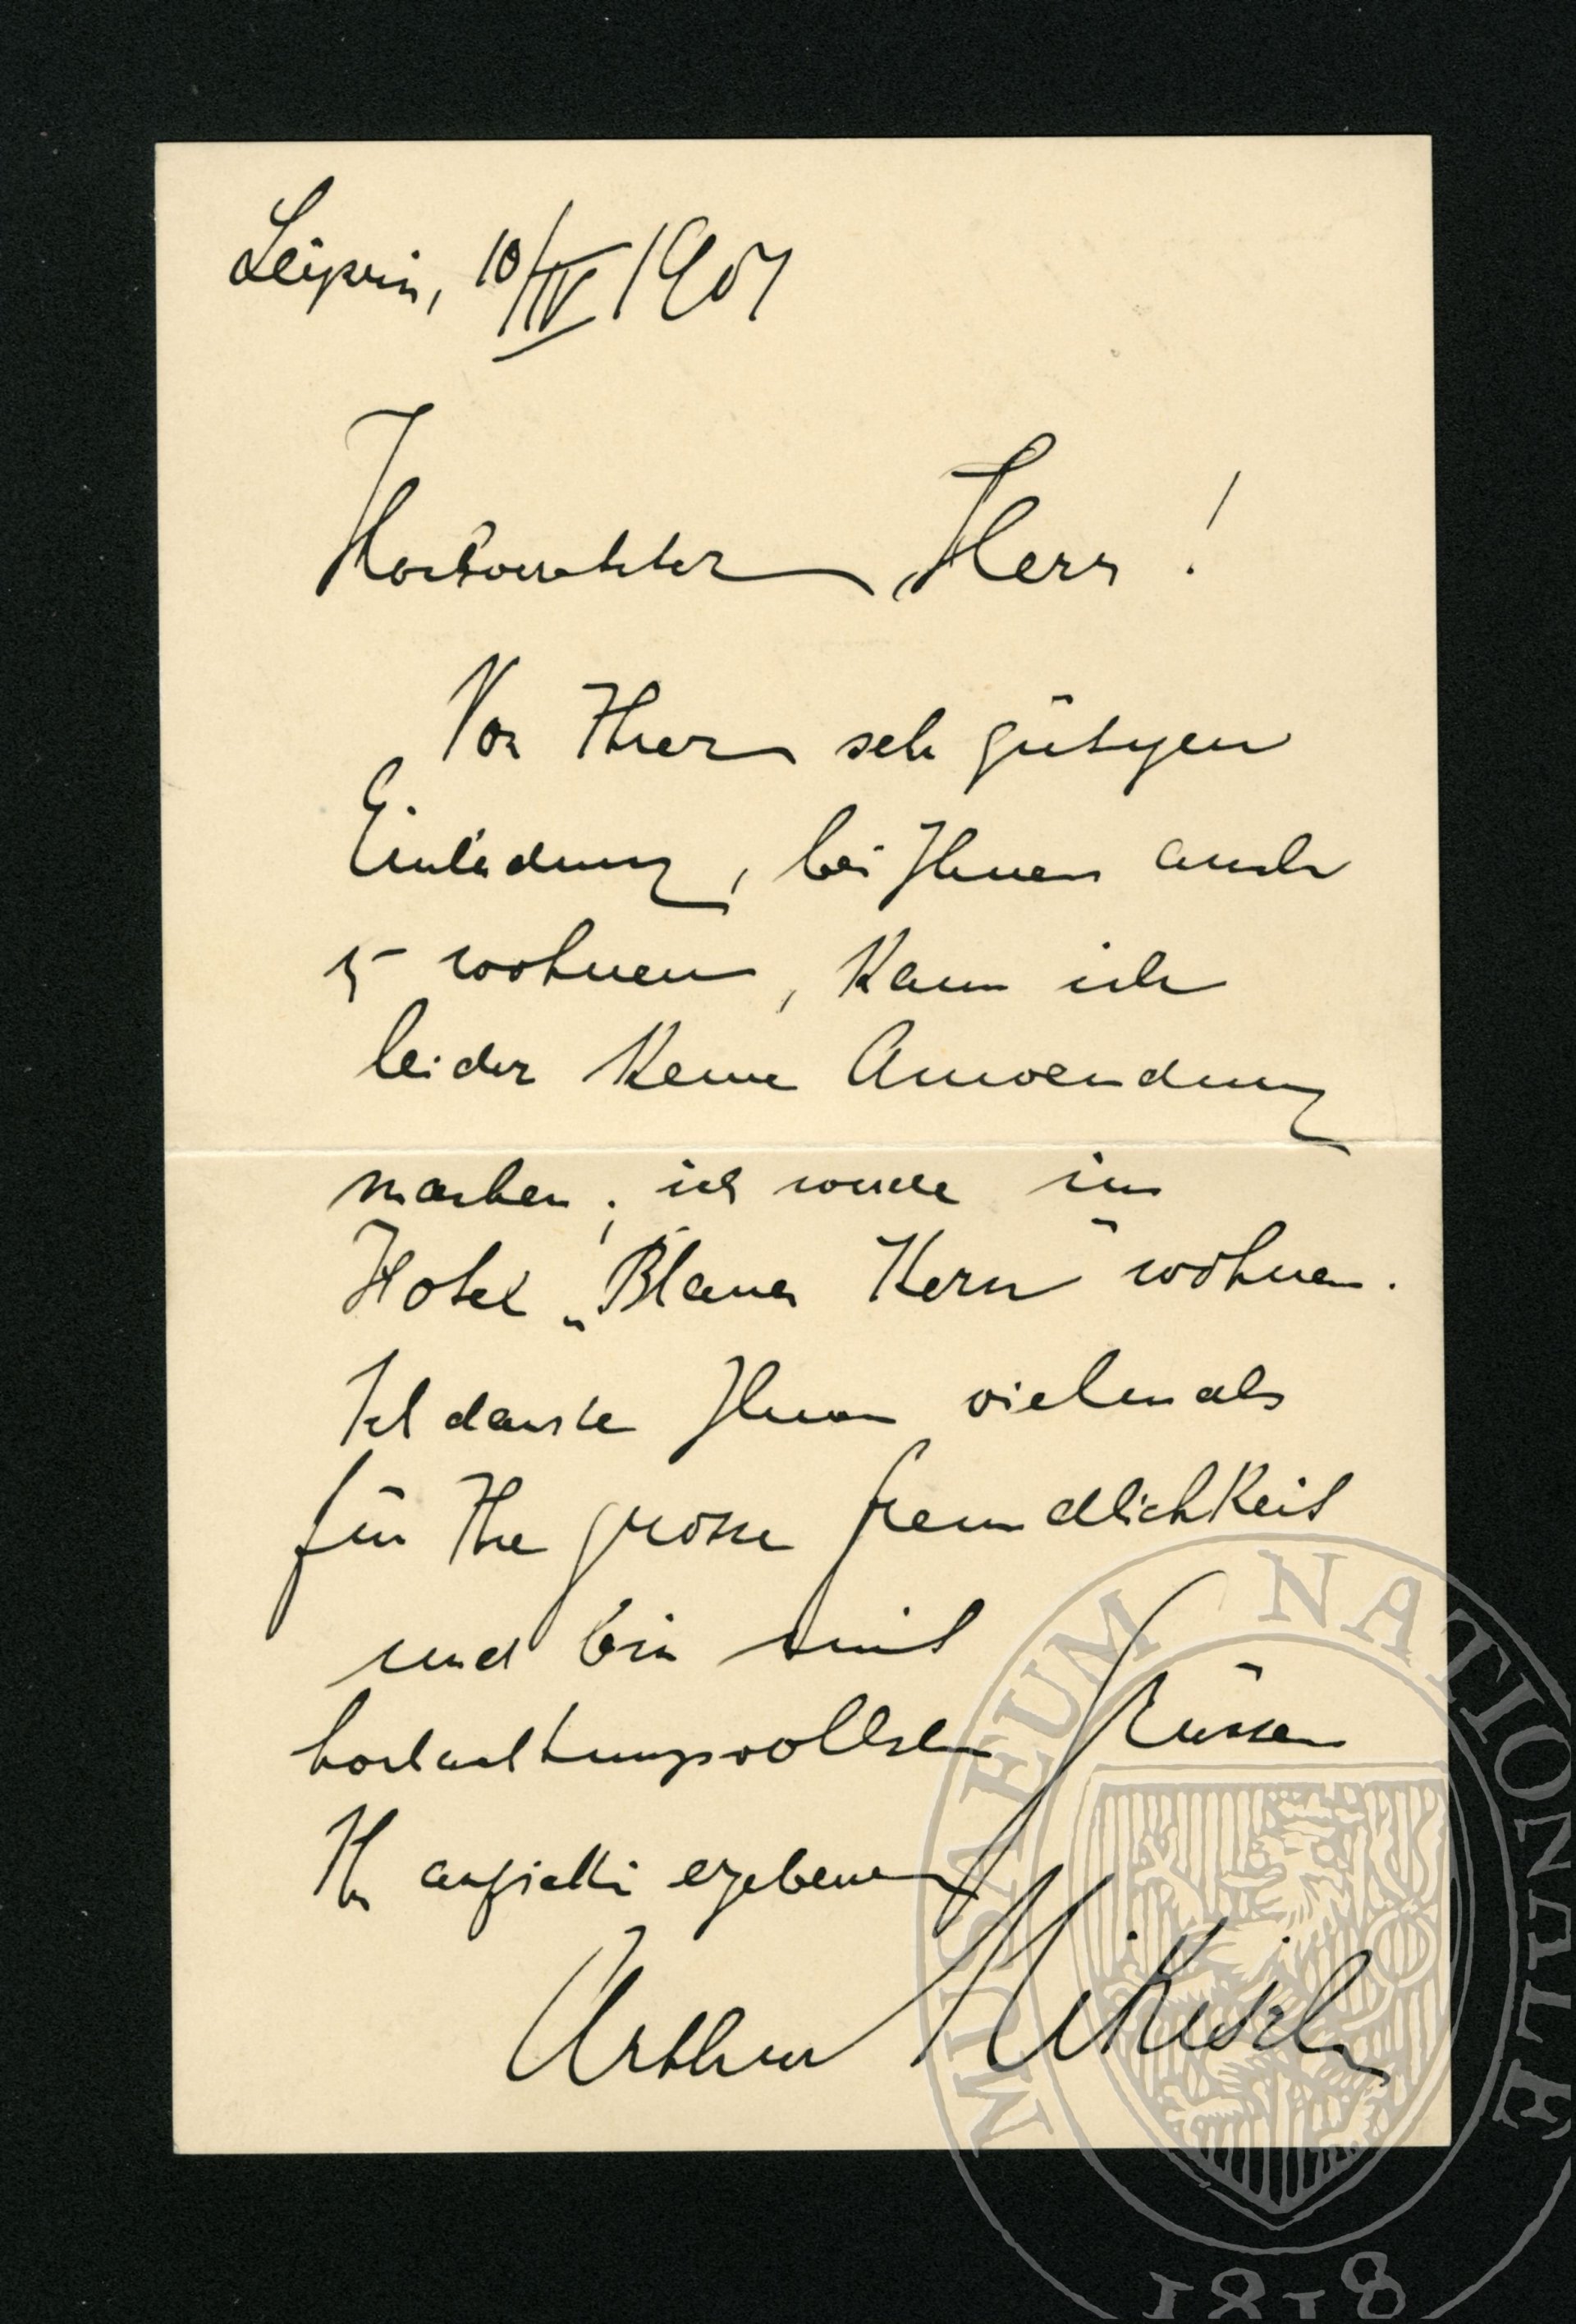 Leipzig, 10/IV 1901
Hochverehrter Herr!
Von Ihrer sehr gütigen
Einladung, bei Ihnen auch
zu wohnen, kann ich
leider keine Anwendung
machen; ich werde im
Hotel „Blauer Stern“ wohnen.
Ich danke Ihnen vielmals
für Ihre grosse Freundlichkeit
und bin mit
hochachtungsvollsten Grüssen
Ihr aufrichtig ergebener
Arthur Nikisch
MUSAEUM NATIONALE
1818